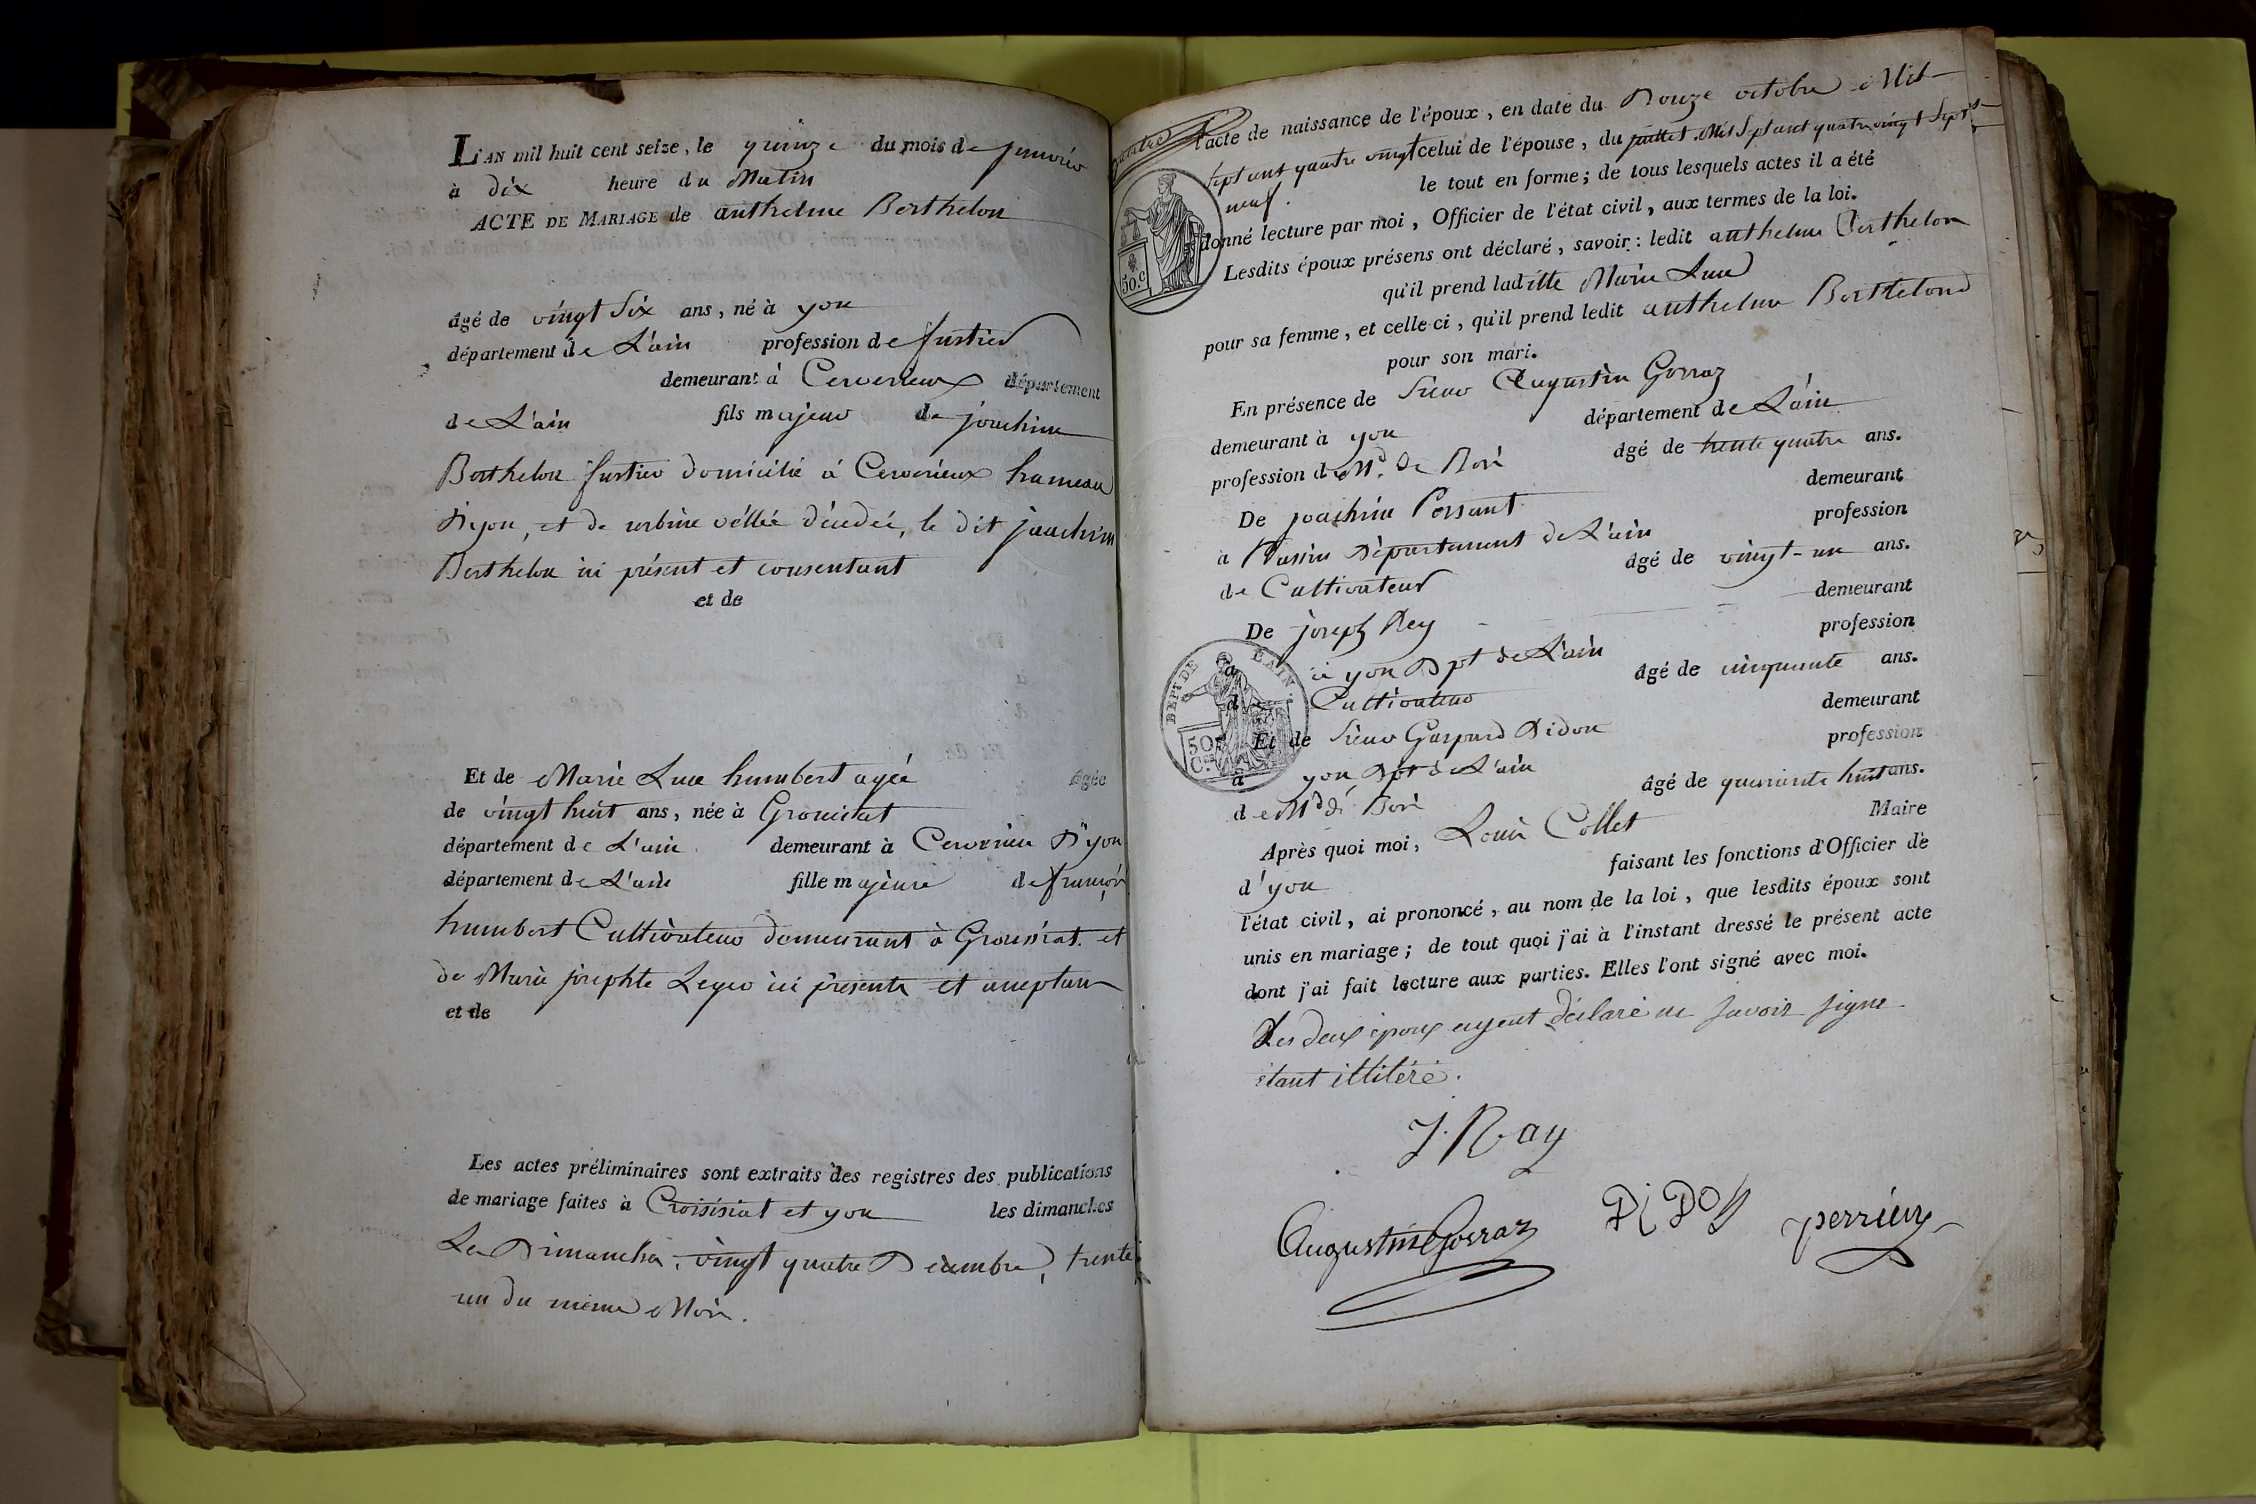 L'AN mil huit cent seize, le quinze du mois de janvier
à dix heure du Matin
ACTE DE MARIAGE de anthelme Berthelon
âgé de vingt Six ans, né à yon
département de L'ain profession de fustier
demeurant à Cerverieux département
de L'ain fils majeur de joachim
Berthelon fustier domicilié à Cerverieux hameau
D'yon, et de décédée, le dit joachim
Berthelon ici présent et consentant
et de
Et de Marie Luce humbert agée âgée
de vingt huit ans, née à
département de L'ain demeurant à Cerverieu D'yon
département de L'ain fille majeure de françois
humbert Cultivateur demeurant à et
de Marie josephte ici présents et
et de
Les actes préliminaires sont extraits des registres des publications
de mariage faites à et yon les dimanches
Les Dimanches, vingt quatre Décembre, trente
un du même Mois.
l'acte de naissance de l'époux, en date du Douze octobre Mil
Sept cent quatre vingt celui de l'épouse, du juillet Mil Sept cent quatre vingt Sept
neuf.
le tout en forme; de tous lesquels actes il a été
donné lecture par moi, Officier de l'état civil, aux termes de la loi.
Lesdits époux présens ont déclaré, savoir: ledit anthelme Berthelon
qu'il prend laditte Marie Luce
pour sa femme, et celle-ci, qu'il prend ledit anthelme Berthelond
pour son mari.
En présence de Sieur Augustin Gorraz
demeurant à yon département de L'ain
profession de Md. de âgé de trente quatre ans.
De joachim demeurant
a Département de L'ain profession
de Cultivateur âgé de vingt-un ans.
De joseph Rey demeurant
à yon Dpt de L'ain profession
d Cultivateur âgé de cinquante ans.
Et de Sieur Gaspard Didon demeurant
a yon Dpt de L'ain profession
de Md de âgé de quarante huit ans.
Après quoi moi, Louis Collet Maire
d'yon faisant les fonctions d'Officier de
l'état civil, ai prononcé, au nom de la loi, que lesdits époux sont
unis en mariage; de tout quoi j'ai à l'instant dressé le présent acte
dont j'ai fait lecture aux parties. Elles l'ont signé avec moi.
Les deux époux ayent déclaré ne Savoir Signe
étant illiteré.
J. Ray
Augustin Gorraz DiDon
50.c
DEPt. DE L'AIN.
50 Cmes